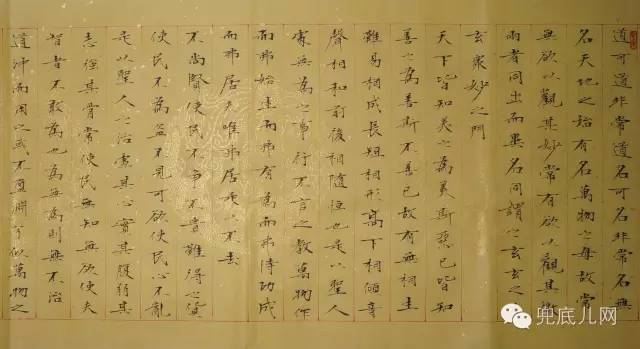 道可道非常道名可名非常名無
名天地之始有名萬物之母故常
無欲以觀其妙常有欲以觀其徼
兩者同出而異名同謂之玄玄之
玄衆妙之門
天下皆知美之為美斯惡已皆知
善之為善斯不善已故有無相生
難易相成長短相形高下相傾音
聲相和前後相隨恒也是以聖人
處無為之事行不言之教萬物作
而弗始生而弗有為而弗恃功成
而弗居夫唯弗居是以不去
不尚賢使民不爭不貴難得之貨
使民不為盜不見可欲使民心不亂
是以聖人之治虛其心實其腹弱其
志強其骨常使民無知無欲使夫
智者不敢為也為無為則無不治
道沖而用之或不盈淵兮似萬物之
兜底儿网